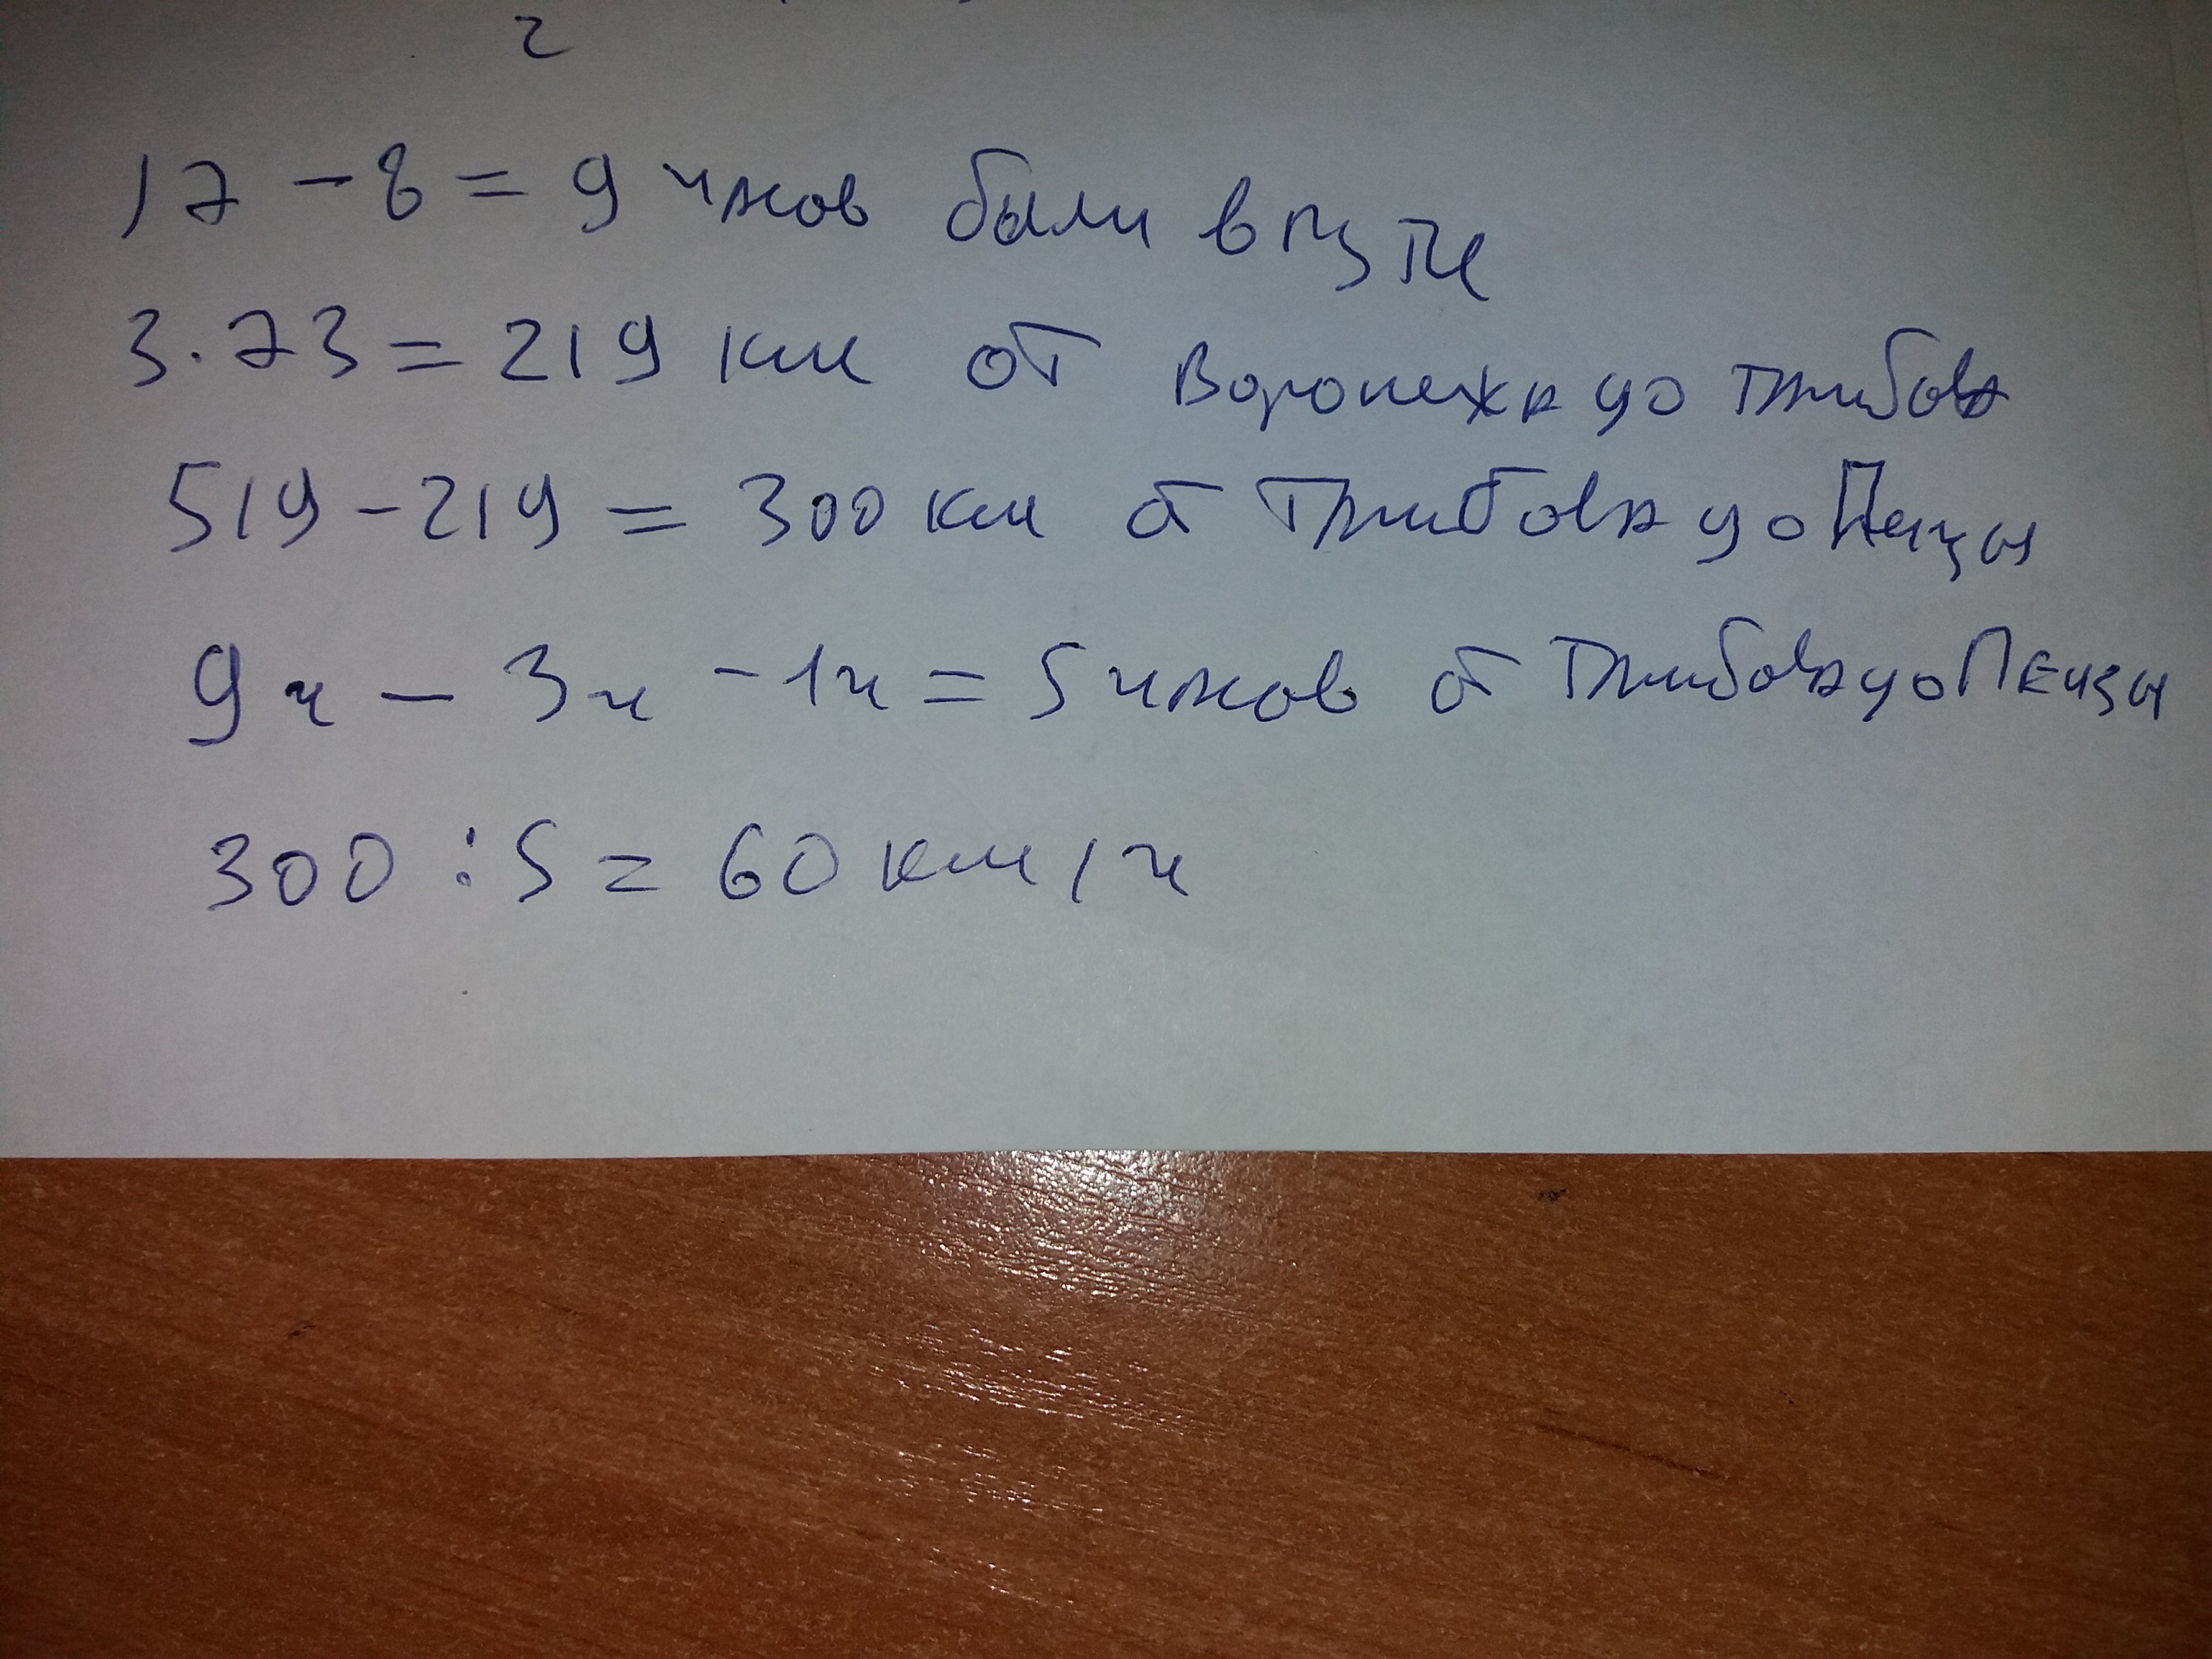 2
17 - 8 = 9 часов были в пути
3 · 73 = 219 км от Воронежа до Тамбова
519 - 219 = 300 км от Тамбова до Пензы
9ч - 3ч - 1ч = 5 часов от Тамбова до Пензы
300 : 5 = 60 км/ч